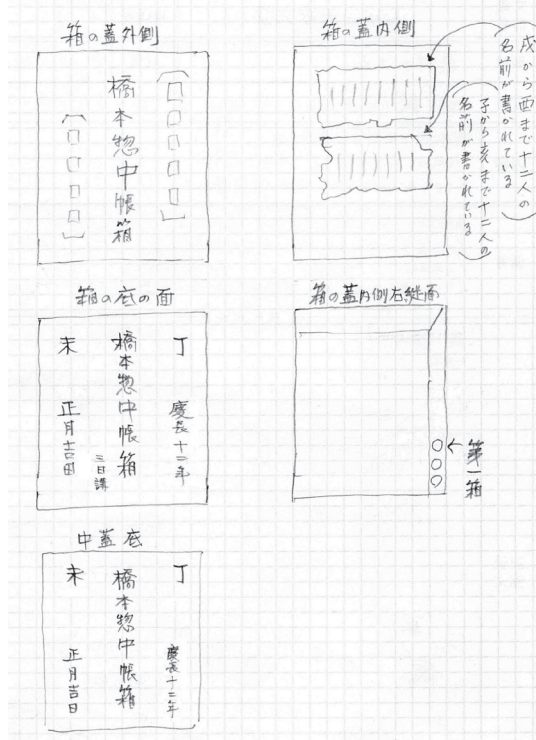 箱の蓋外側
〔□□□□□〕
橋本惣中帳箱
〔□□□□□〕
箱の蓋内側
戌から酉まで十二人の
名前が書かれている
子から亥まで十二人の
名前が書かれている
箱の底の面
丁
慶長十二年
橋本惣中帳箱
三日講
未
正月吉日
箱の蓋内側右縦面
第一箱
中蓋底
丁
慶長十二年
橋本惣中帳箱
未
正月吉日